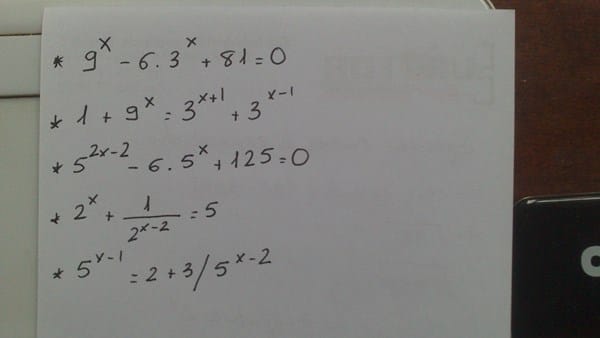 * 9^x - 6 . 3^x + 81 = 0
* 1 + 9^x = 3^(x+1) + 3^(x-1)
* 5^(2x-2) - 6 . 5^x + 125 = 0
* 2^x + 1/2^(x-2) = 5
* 5^(x-1) = 2 + 3/5^(x-2)